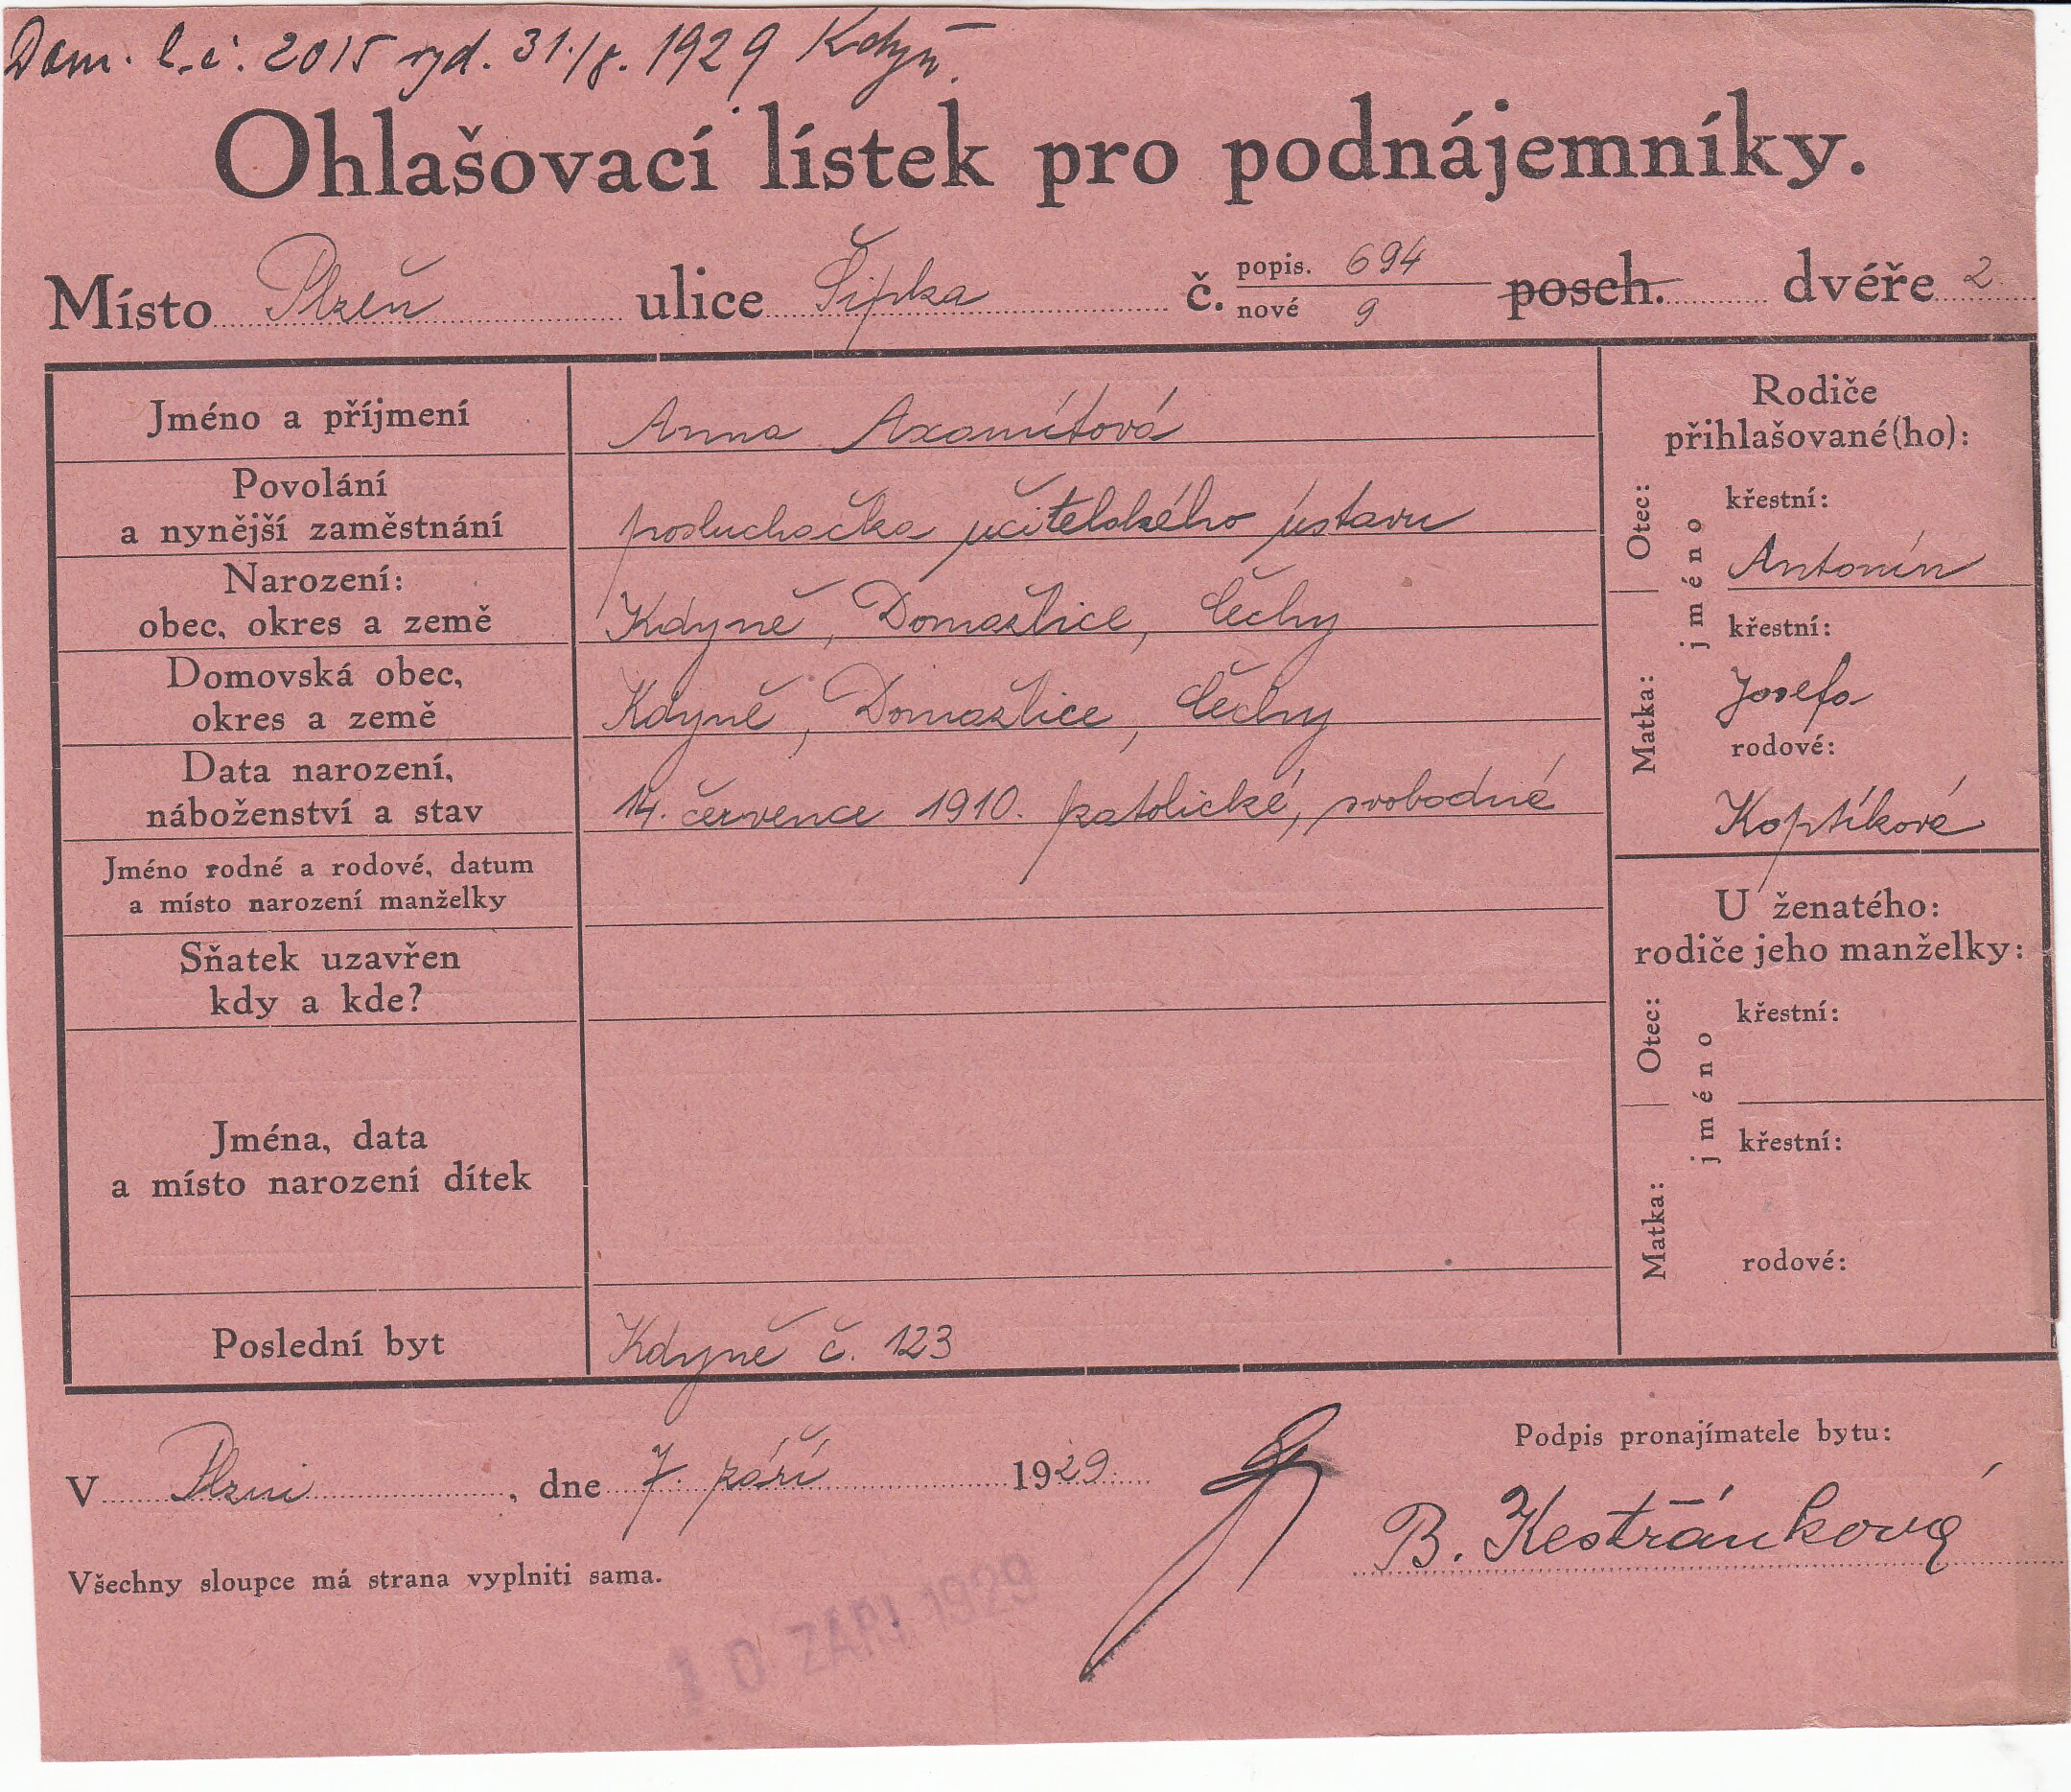 Dom. l. č. 2015 vyd. 31./8. 1929 Kdyň.
Ohlašovací lístek pro podnájemníky.
Místo Plzeň ulice Šipka č. popis. 694 nové 9 posch. dvéře 2
Jméno a příjmení
Anna Axamítová
Povolání
a nynější zaměstnání
posluchačka učitelského ústavu
Narození:
obec, okres a země
Kdyně, Domažlice, Čechy
Domovská obec,
okres a země
Kdyně, Domažlice, Čechy
Data narození,
náboženství a stav
14. července 1910. katolické, svobodné
Jméno rodné a rodové, datum
a místo narození manželky
Sňatek uzavřen
kdy a kde?
Jména, data
a místo narození dítek
Poslední byt
Kdyně č. 123
Rodiče
přihlašované(ho):
Otec:
jméno
křestní:
Antonín
Matka:
křestní:
Josefa
rodové:
Koptíková
U ženatého:
rodiče jeho manželky:
Otec:
jméno
křestní:
Matka:
křestní:
rodové:
V Plzni, dne 7. září 1929.
Podpis pronajímatele bytu:
B. Kestřánková
Všechny sloupce má strana vyplniti sama.
10 ZÁŘI 1929